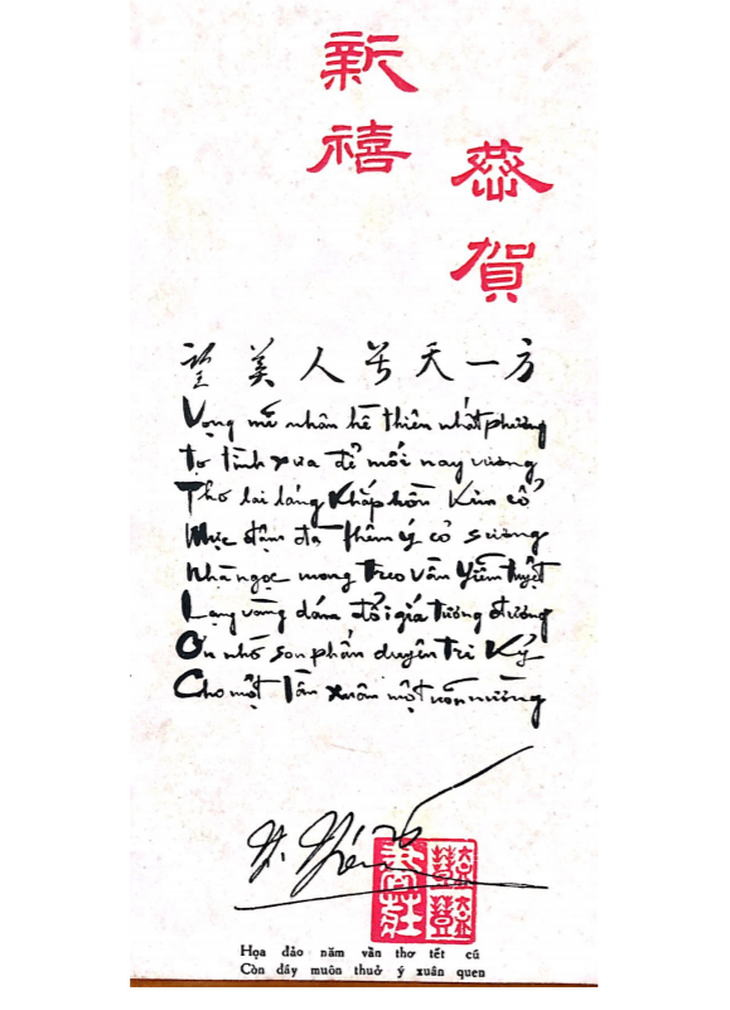 恭賀
新禧
望美人兮天一方
Vọng mỹ nhân hề thiên nhất phương
Tơ tình xưa để mối nay vương
Thơ lai láng khắp hồn kim cổ
Mực đậm đà thêm ý cỏ sương
Nhà ngọc mong treo vần yểm tuyệt
Lạng vàng dám đổi giá tương đương
Ơn nhớ son phấn duyên tri kỷ
Cho một lần xuân một
Họa đào năm vần thơ tết cũ
Còn đây muôn thuở ý xuân quen